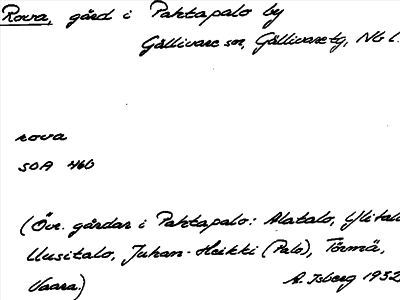 Rova, gård i Pahtapalo by
Gällivare sn, Gällivare tg, Nb l.
rova
SOA 460
(Övr. gårdar i Pahtapalo: Alatalo, Ylitalo
Uusitalo, Juhan-Heikki (Palo), Törmä,
Vaara.)
A. Isberg 1932